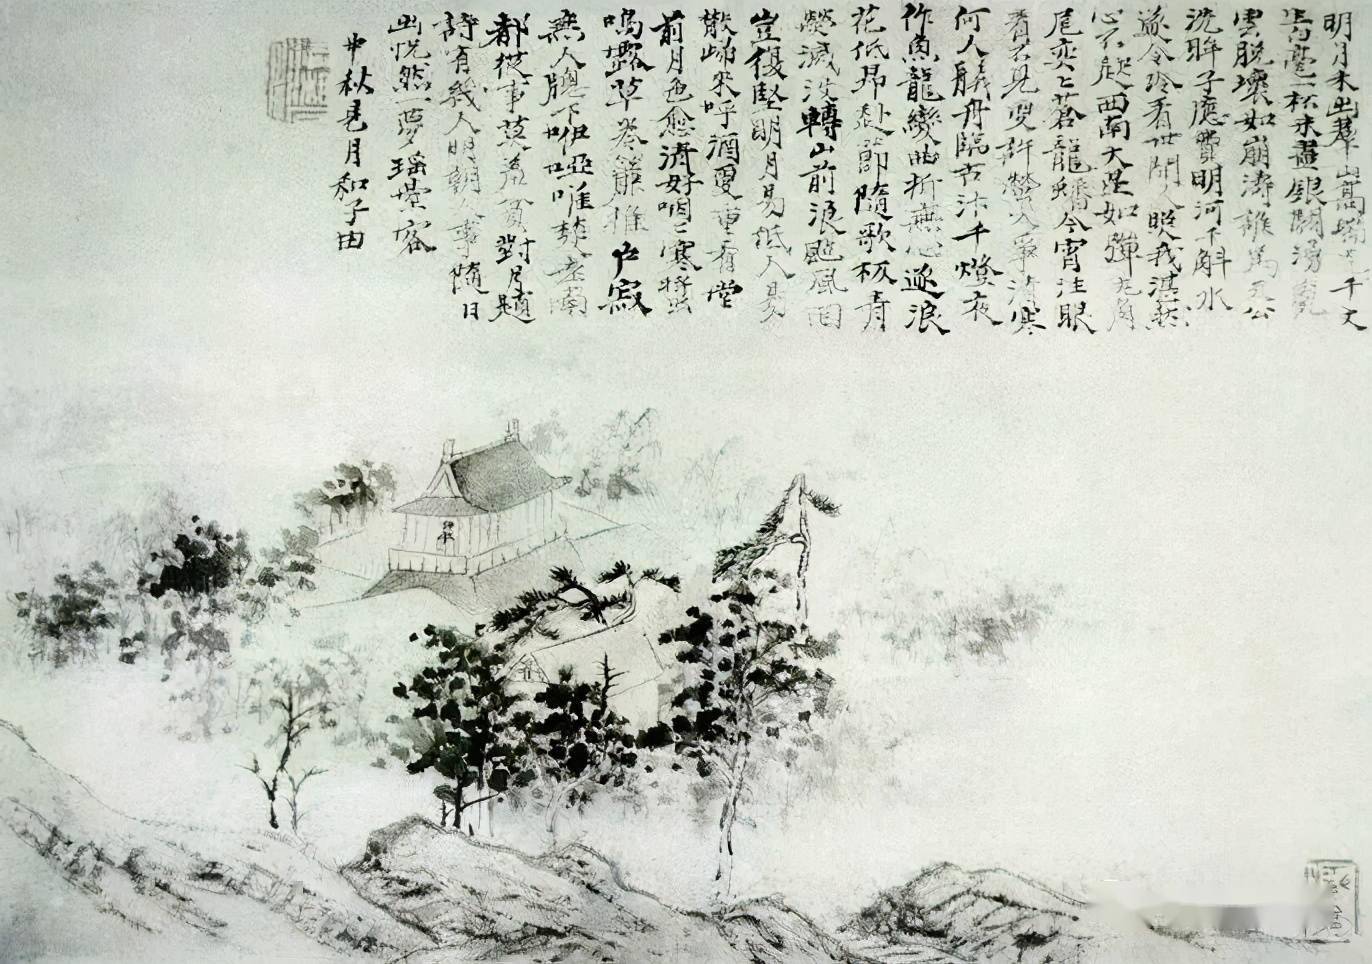 明月未出羣山高瑞光千丈
生白毫一杯未盡銀闕湧亂
雲脫壞如崩濤誰為天公
洗眸子應費明河千斛水
遂令冷看世間人照我湛然
心不起西南火星如彈丸角
尾奕々蒼龍蟠今宵注眼
看不見更許螢火爭清寒
何人艤舟臨古汴千燈夜
作魚龍變曲折無心逐浪
花低昂赴節隨歌板青
熒滅沒轉山前浪颭風回
豈復堅明月易低人易
散歸來呼酒更重看堂
前月色愈清好咽々寒螿
鳴露草卷簾推戶寂
無人窻下咿啞唯楚老南
都從事莫羞貧對月題
詩有幾人明朝人事隨日
出恍然一夢瑤臺客
中秋見月和子由